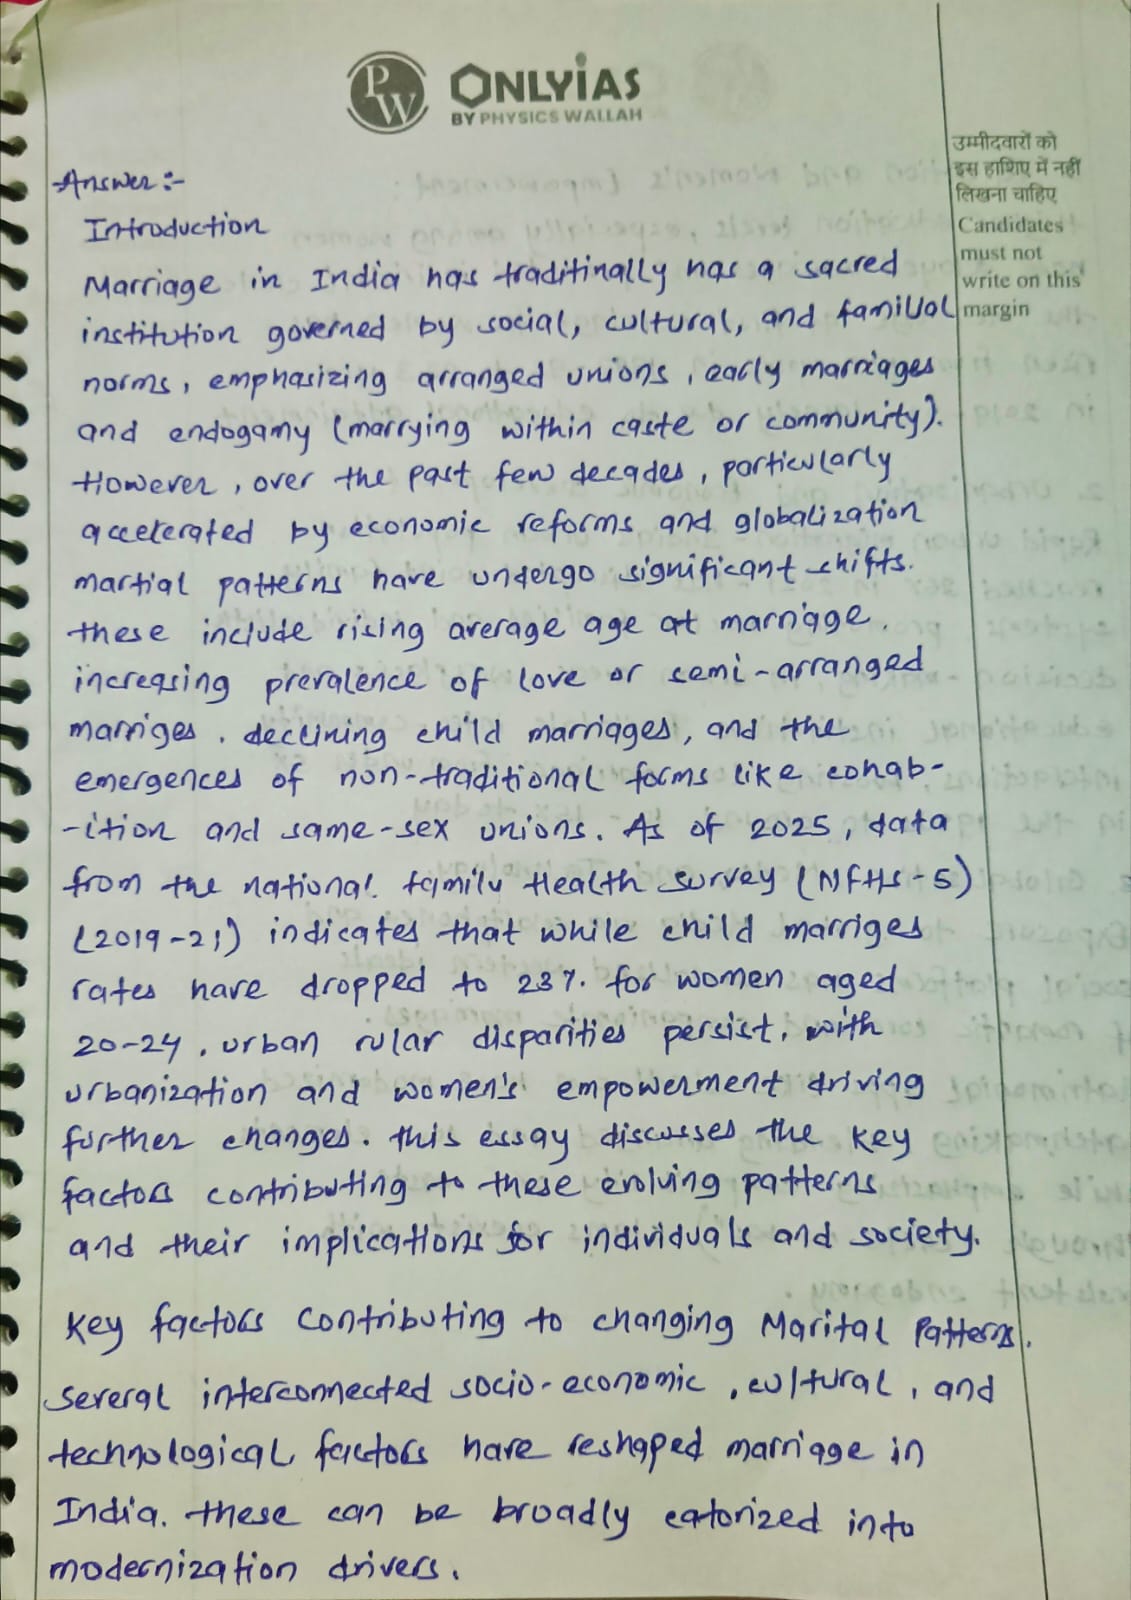 PW
ONLYiAS
BY PHYSICS WALLAH
उम्मीदवारों को
इस हाशिए में नहीं
लिखना चाहिए
Candidates
must not
write on this
margin
Answer :-
Introduction
Marriage in India has traditinally has a sacred
institution governed by social, cultural, and familial
norms, emphasizing arranged unions, early marriages
and endogamy (marrying within caste or community).
However, over the past few decades, particularly
accelerated by economic reforms and globalization
martial patterns have undergo significant shifts.
these include rising average age at marriage,
increasing prevalence of love or semi-arranged
marriges, declining child marriages, and the
emergences of non-traditional forms like cohab-
-ition and same-sex unions. As of 2025, data
from the national family Health Survey (NFHS-5)
(2019-21) indicates that while child marriges
rates have dropped to 23% for women aged
20-24, urban rular disparities persist, with
urbanization and women's empowerment driving
further changes. this essay discusses the key
factors contributing to these evolving patterns
and their implications for individuals and society.
Key factors contributing to changing Marital Patterns.
Several interconnected socio-economic, cultural, and
technological factors have reshaped marriage in
India. these can be broadly catorized into
modernization drivers.